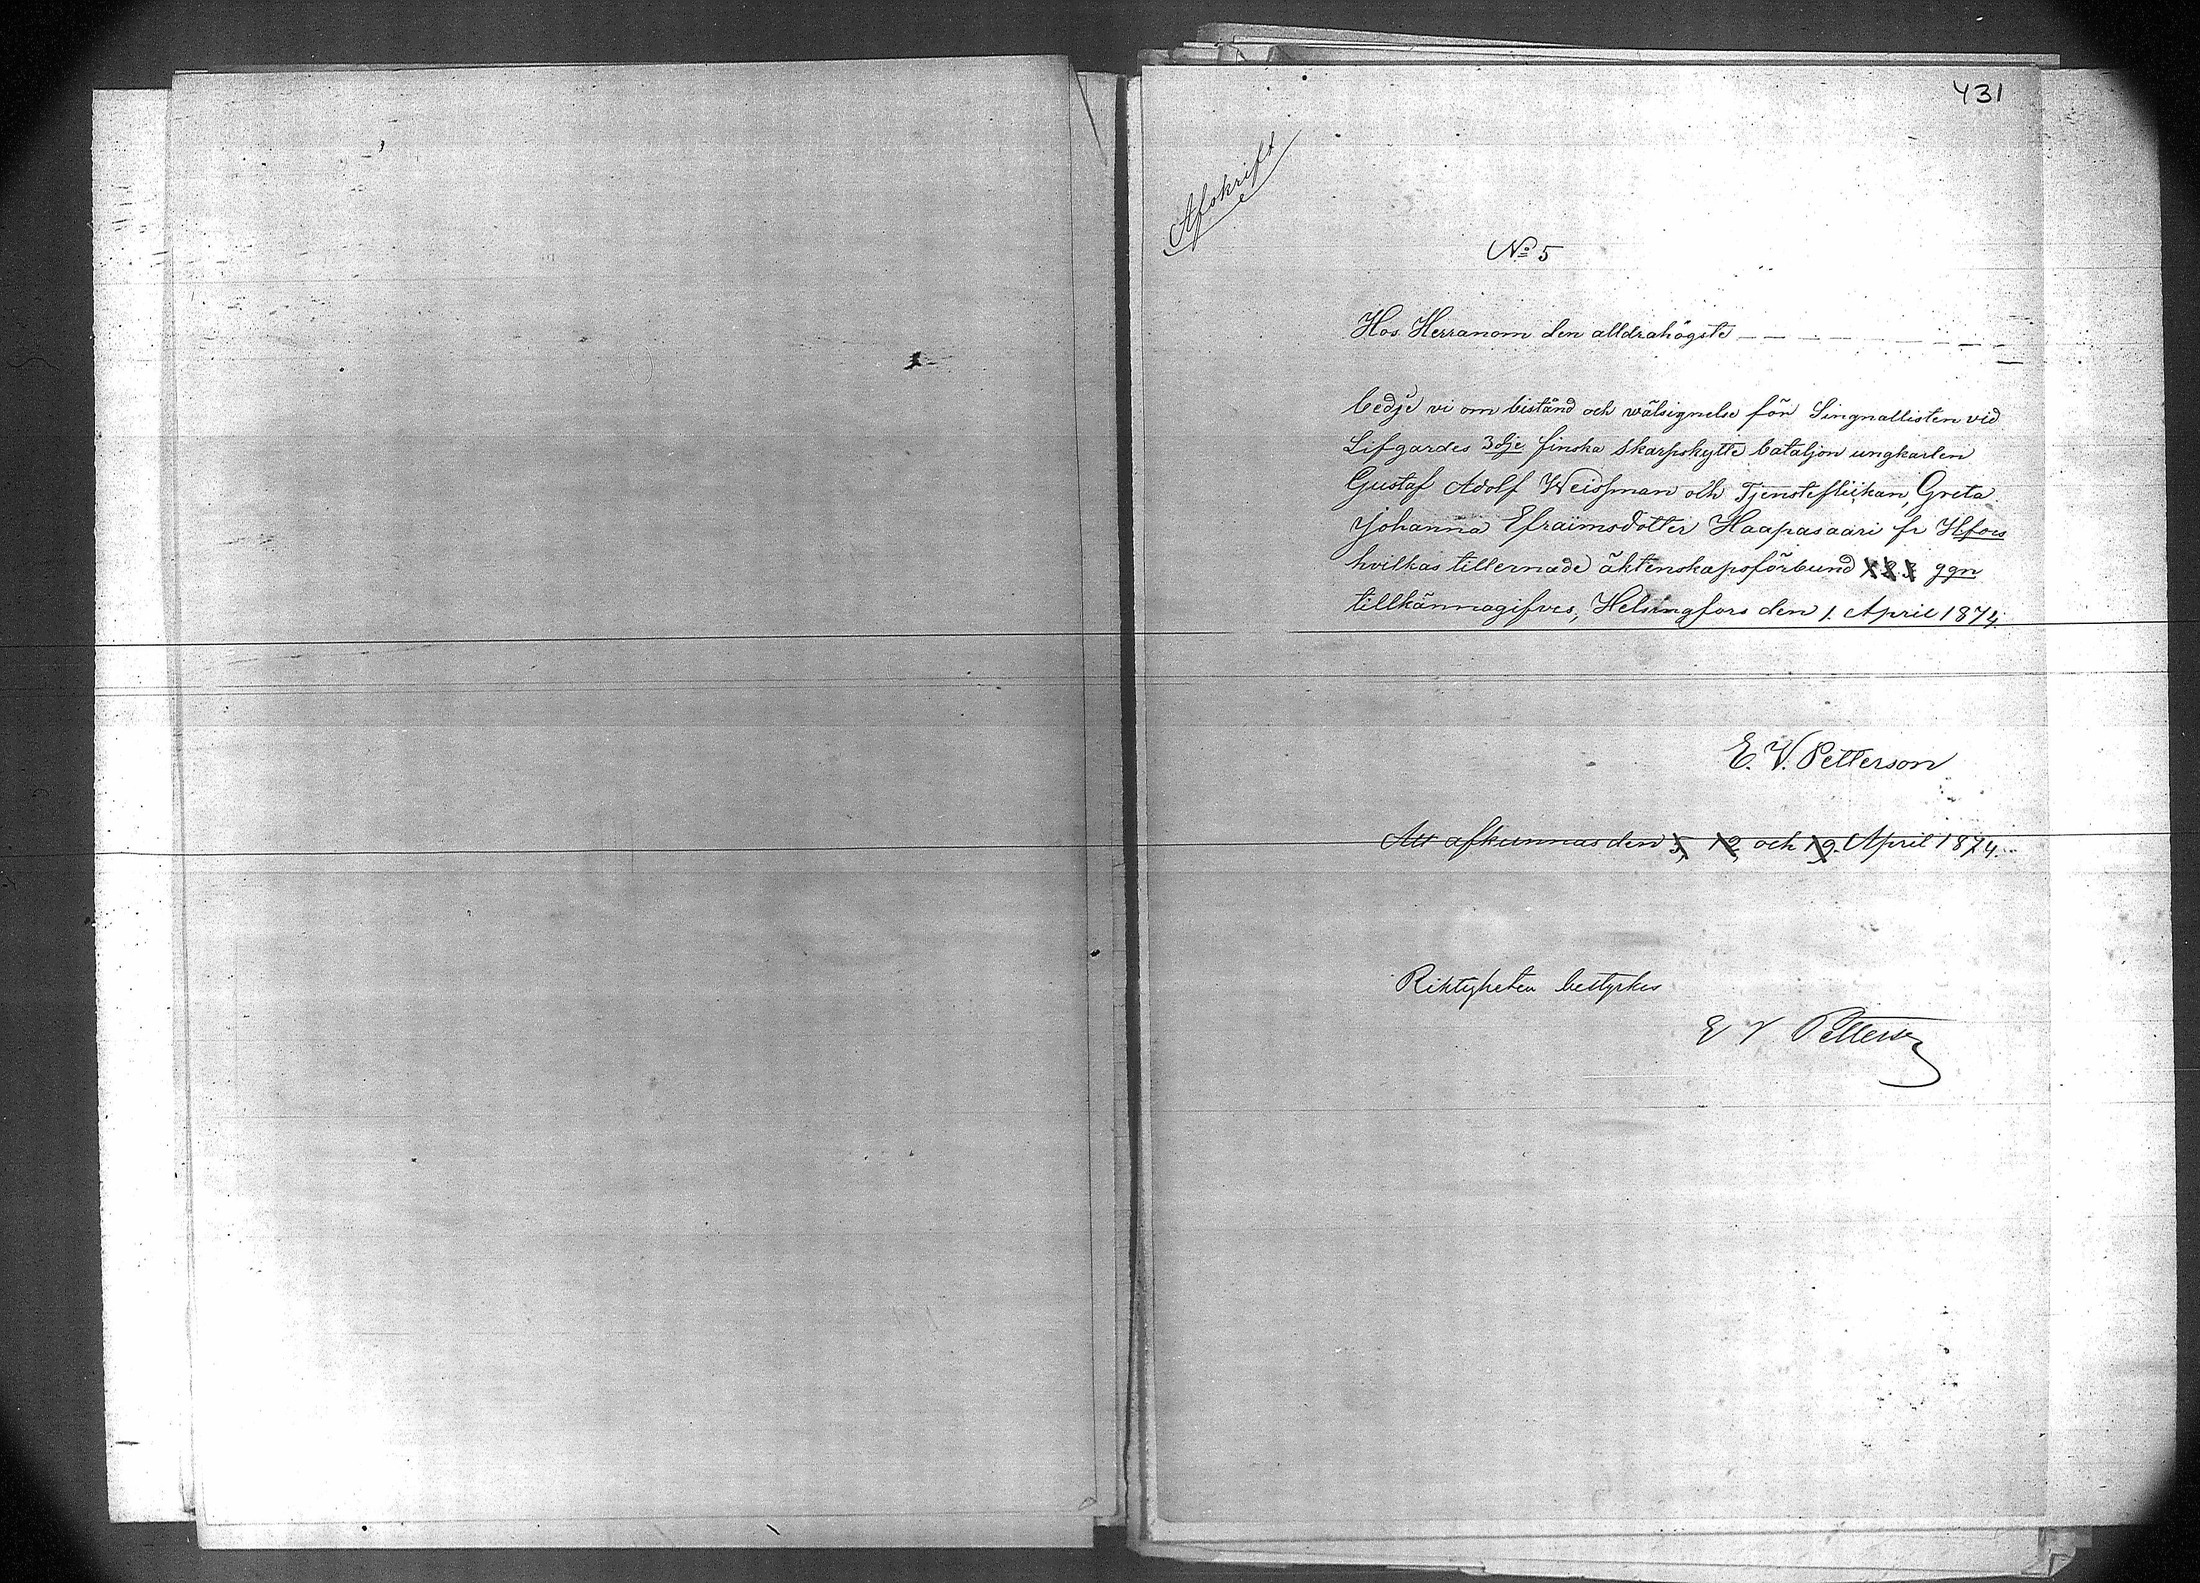 431
Afskrift
No 5
Hos Herranom den alldrahögste
bedje vi om bistånd och wälsignelse för Singnallisten vid
Lifgardes 3dje finska skarpskytte bataljon ungkarlen
Gustaf Adolf Weissman och Tjensteflickan, Greta
Johanna Efraimsdotter Haapasaari fr H:fors
hvilkas tillernade äktenskapsförbund 1 2 3 ggn
tillkännagifves, Helsingfors den 1. April 1874.
E. V. Petterson
Att afkunnas den 5, 12, och 19. April 1874.
Riktigheten bestyrkes
E V Petterson